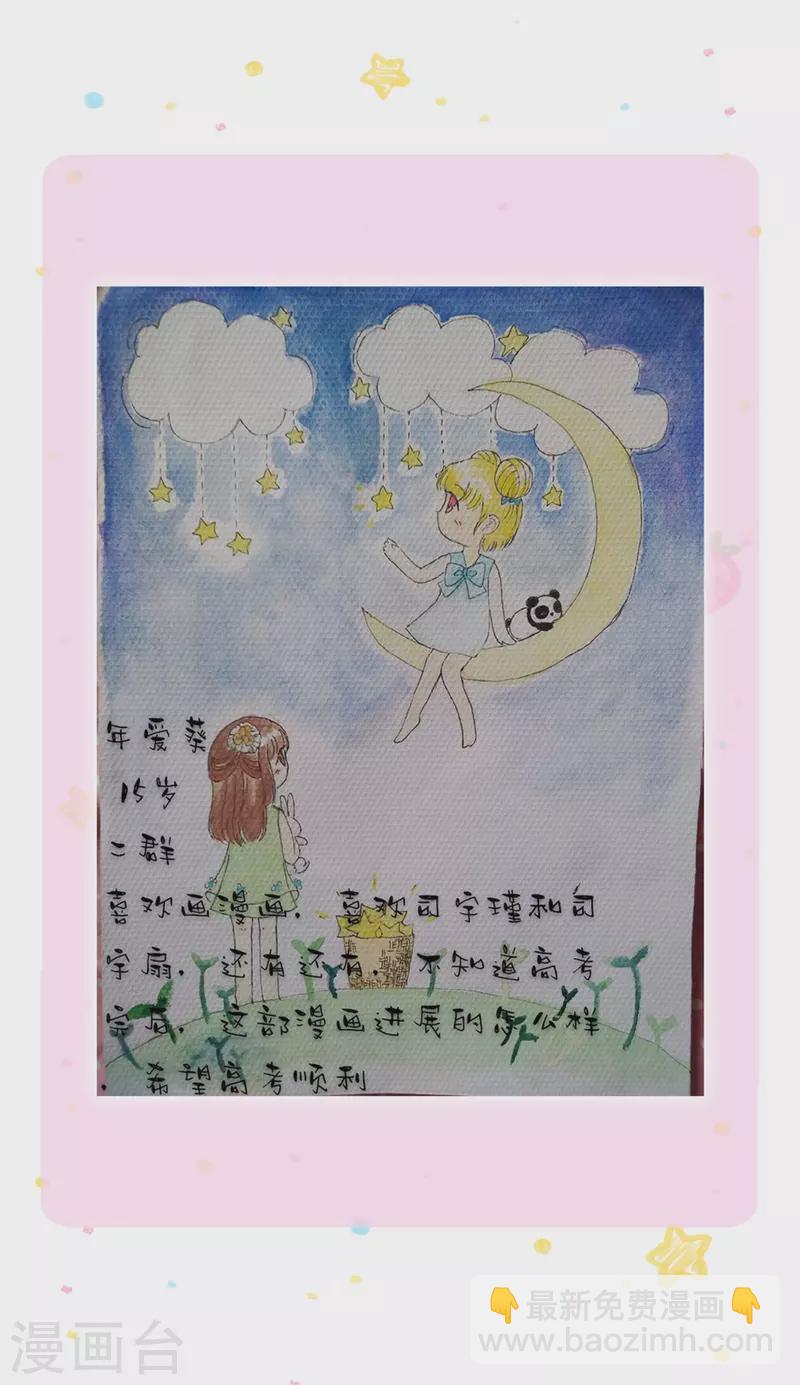 年爱葵
15岁
二群
喜欢画漫画，喜欢司宇瑾和司
宇扇，还有还有，不知道高考
完后，这部漫画进展的怎么样
，希望高考顺利
漫画台
👇最新免费漫画👇
www.baozimh.com